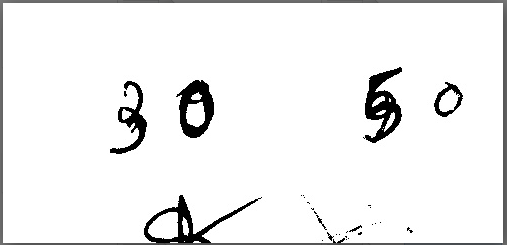 30 50